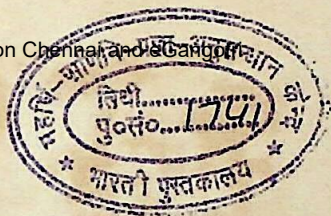 on Chennai and eGangotri
महर्षि-पाणिनि-
तिथी............
पु०सं०....1741
* भारती पुस्तकालय *